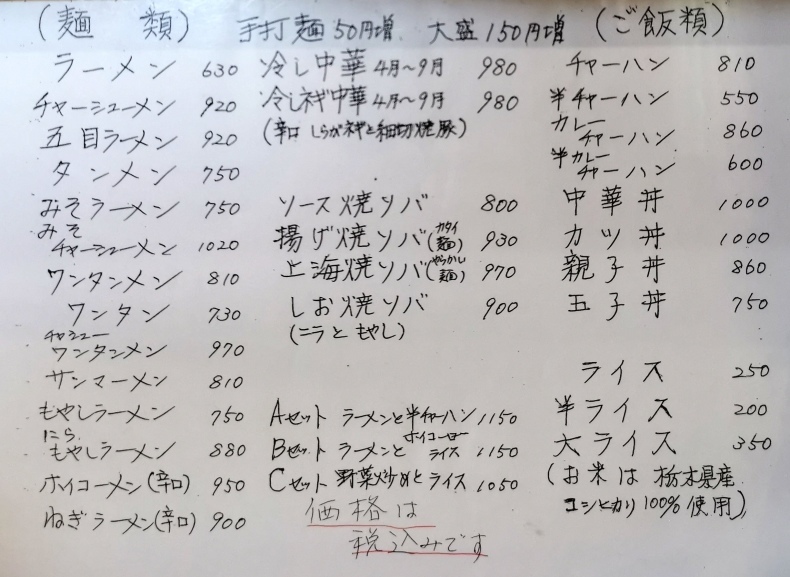 (麺 類) 手打麺50円増 大盛150円増 (ご飯類)
ラーメン 630
チャーシューメン 920
五目ラーメン 920
タンメン 750
みそラーメン 750
みそ
チャーシューメン 1020
ワンタンメン 810
ワンタン 730
チャシュー
ワンタンメン 970
サンマーメン 810
もやしラーメン 750
にら
もやしラーメン 880
ホイコーメン(辛口) 950
ねぎラーメン(辛口) 900
冷し中華 4月〜9月 980
冷しネギ中華 4月〜9月 980
(辛口 しらがネギと細切焼豚)
ソース焼ソバ 800
揚げ焼ソバ(カタイ麺) 930
上海焼ソバ(やらかし麺) 970
しお焼ソバ 900
(ニラともやし)
Aセット ラーメンと半チャーハン 1150
Bセット ラーメンとホイコーローライス 1150
Cセット 野菜炒めとライス 1050
価格は
税込みです
チャーハン 810
半チャーハン 550
カレー
チャーハン 860
半カレー
チャーハン 600
中華丼 1000
カツ丼 1000
親子丼 860
玉子丼 750
ライス 250
半ライス 200
大ライス 350
(お米は 栃木県産
コシヒカリ100%使用)